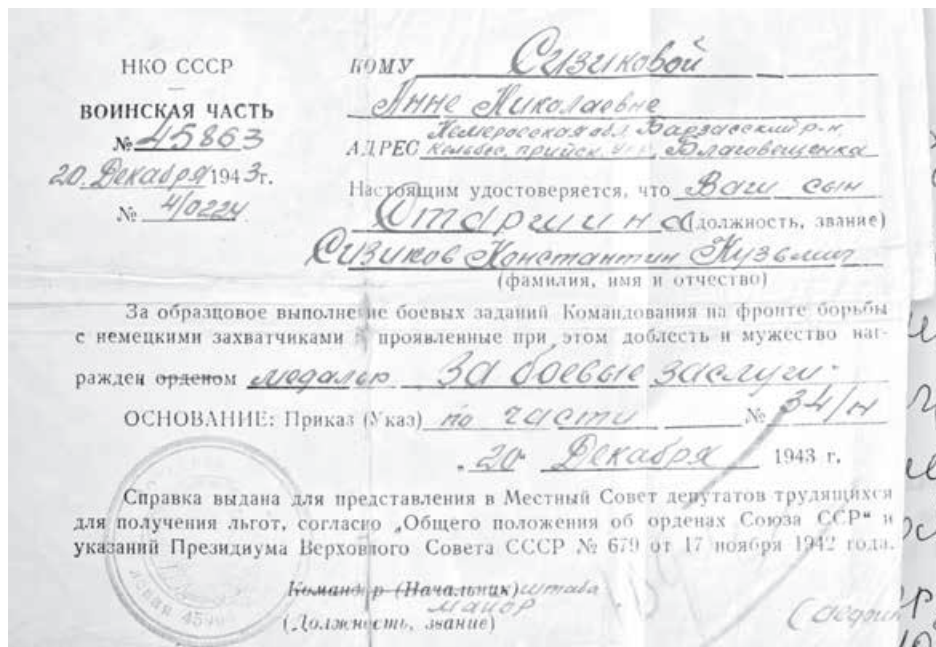 НКО СССР
ВОИНСКАЯ ЧАСТЬ
№ 45863
20. Декабря 1943 г.
№ 4/0224
КОМУ Сизиковой
Анне Николаевне
АДРЕС Кемеровская обл. Барзасский р-н,
Кельбес, прийск, Благовещенка
Настоящим удостоверяется, что Ваш сын
Старшина (должность, звание)
Сизиков Константин Кузьмич
(фамилия, имя и отчество)
За образцовое выполнение боевых заданий Командования на фронте борьбы
с немецкими захватчиками и проявленные при этом доблесть и мужество наг-
ражден орденом медалью За боевые заслуги.
ОСНОВАНИЕ: Приказ (Указ) по части № 34/н
"20" Декабря 1943 г.
Справка выдана для представления в Местный Совет депутатов трудящихся
для получения льгот, согласно „Общего положения об орденах Союза ССР" и
указаний Президиума Верховного Совета СССР № 679 от 17 ноября 1942 года.
Командир (Начальник) штаба
майор
(Должность, звание)